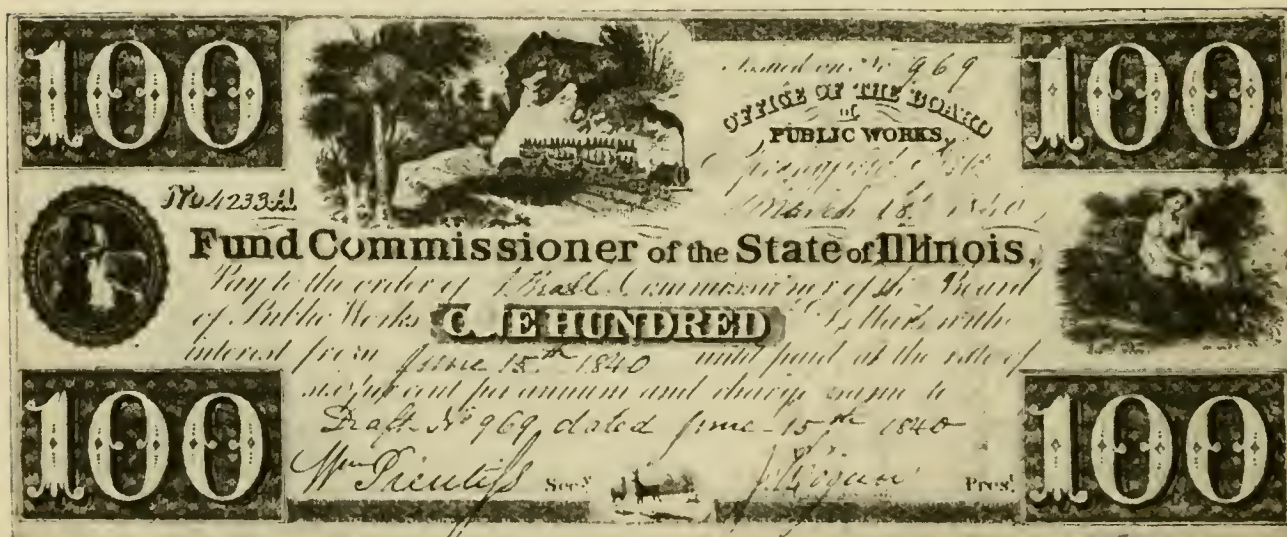 100
100
Issued on No 969
OFFICE OF THE BOARD
of
PUBLIC WORKS,
March 18th 1840,
No 4233 A
Fund Commissioner of the State of Illinois,
Pay to the order of Commissioner of the Board
of Public Works ONE HUNDRED Dollars with
interest from June 15th 1840 until paid at the rate of
six per cent per annum and charge same to
Draft No 969, dated June 15th 1840
Wm Prentiss Secy. Presl.
100
100